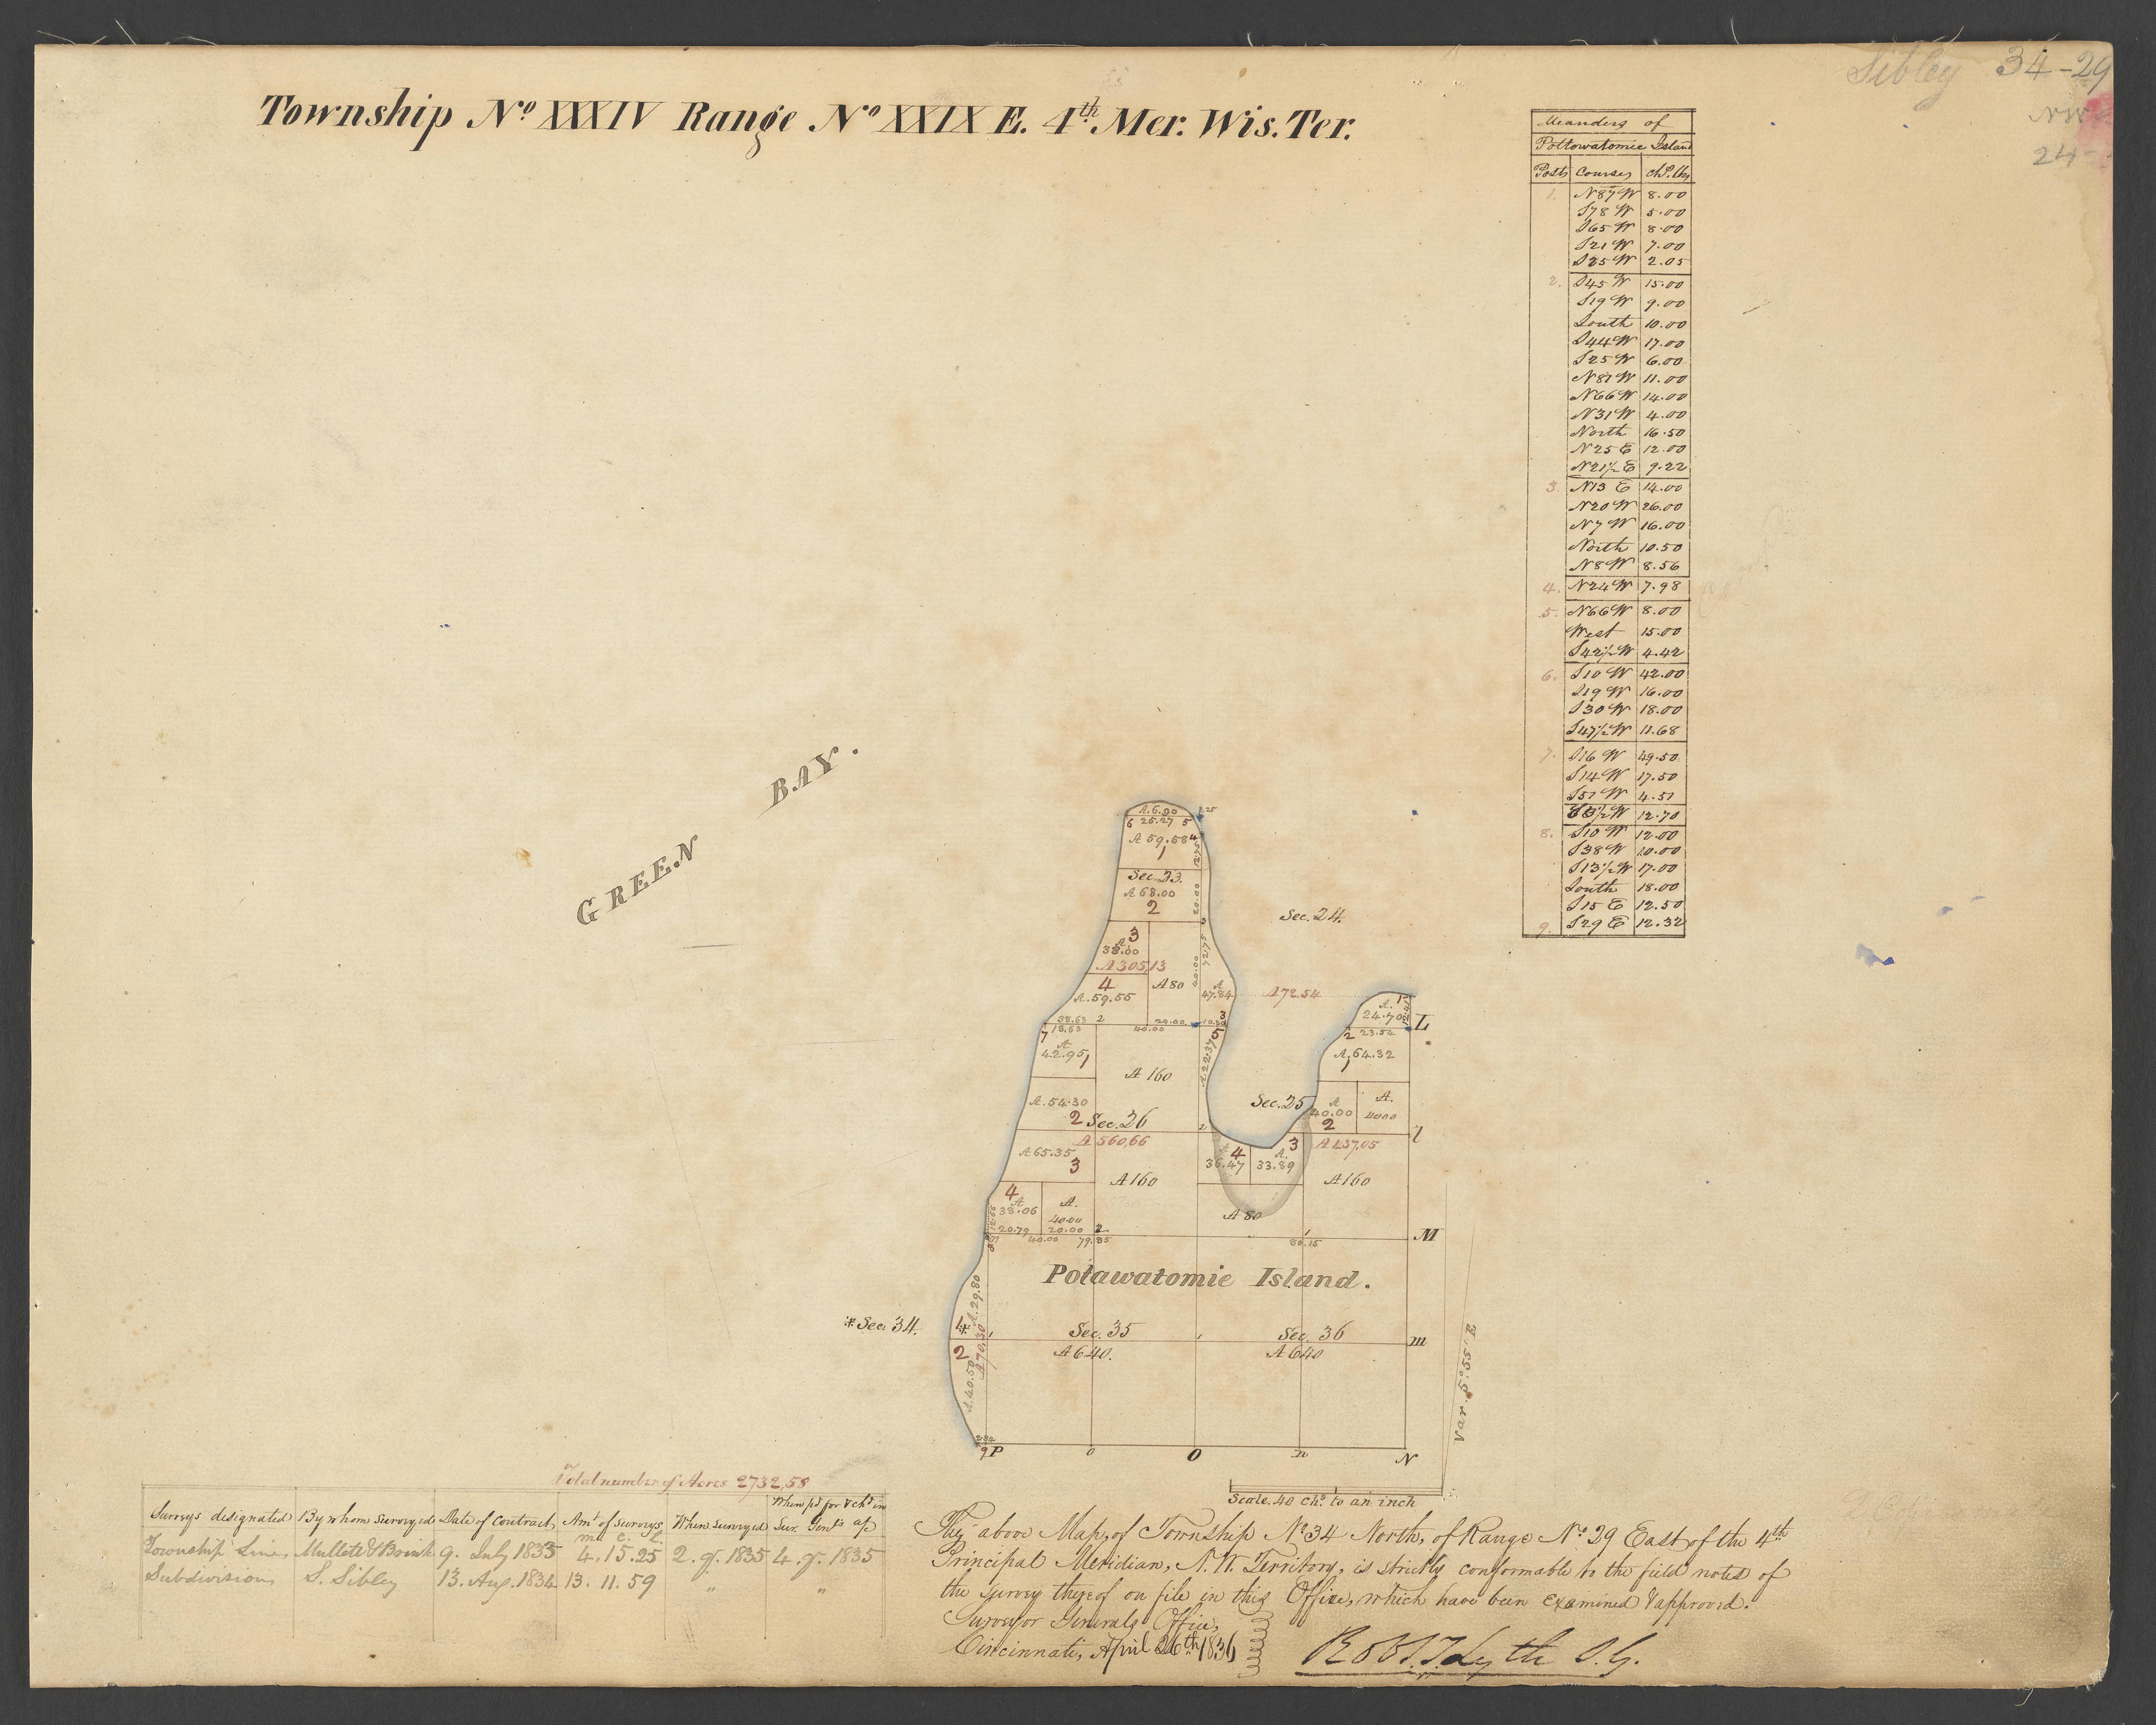 Sibley 34-29
24-
Township Nº XXXIV Range Nº XXIX E. 4th Mer. Wis. Ter.
Meanders of
Pottowatomie Island
Posts Courses chs. lks
1. N87W 8.00
S78W 5.00
S65W 8.00
S21W 7.00
S25W 2.05
2. S45W 15.00
S19W 9.00
South 10.00
S44W 17.00
S25W 6.00
N81W 11.00
N66W 14.00
N31W 4.00
North 16.50
N25E 12.00
N21½E 9.22
3. N13E 14.00
N20W 26.00
N7W 16.00
North 10.50
N8W 8.56
4. N24W 7.98
5. N66W 8.00
West 15.00
S42½W 4.42
6. S10W 42.00
S19W 16.00
S30W 18.00
S47½W 11.68
7. S16W 49.50
S14W 17.50
S51W 4.51
12.70
8. S10W 12.00
S38W 10.00
S13½W 17.00
South 18.00
S15E 12.50
9. S29E 12.32
GREEN BAY.
A.6.90
6 25.27 5
A 59.58 4
1
Sec. 23.
A 68.00
2
20.00
Sec. 24.
3
A
38.00
A 305,13
4 A 80
A.59.55
40.00
A
47.84
A 72.54
A. 1
24.70
38.63 2 20.00 10.30 3
7 18.63 40.00 5
L
2 23.52
A
42.95 1
A. 64.32
1
A 160
A. 22.37
A. 54.30
2 Sec. 26
Sec. 25
A
40.00
2
A.
40.00
A 560,66
A 437,05
l
A 65.35
3
A 160
A 4
36.47
3
A.
33.89
A 160
4
A
38.06
A.
40.00
20.79 20.00 2
A 80
40.00 79.85
80.15
M
8
Potawatomie Island.
A. 29.80
* Sec. 34.
1
Sec. 35
Sec. 36
m
2
A 70,30
A 640.
A 640
A. 40.50
Var. 5º.55' E.
9 P o O n N
Scale. 40 chs. to an inch
Total number of Acres 2732,58
Surveys designated By whom Surveyed Date of Contract, Amt. of surveys When surveyed When pd. for & chd. in Sur. Genl's a/c
m c. l.
Township Lines Mullett & Brink 9. July 1835 4. 15. 25 2. q. 1835 4. q. 1835
Subdivisions S. Sibley 13. Aug. 1834 13. 11. 59 " "
The above Map, of Township Nº 34 North, of Range Nº. 29 East of the 4th
Principal Meridian, N. W. Territory, is strictly conformable to the field notes of
the survey thereof on file in this Office, which have been examined & approved.
Surveyor Generals Office,
Cincinnati, April 26th 1836
Robt. T. Lytle S. G.